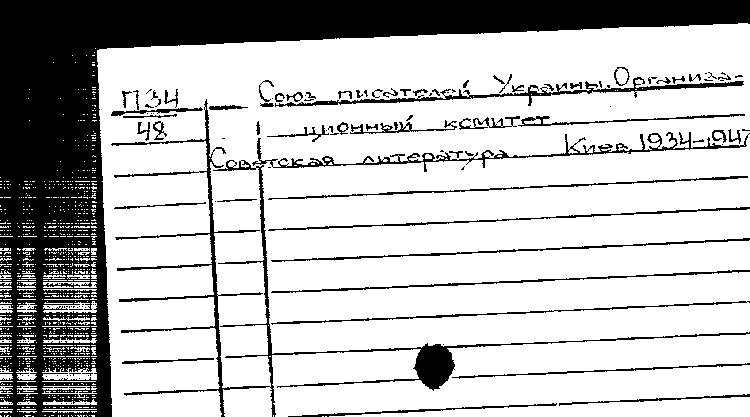 П34 Союз писателей Украины. Организа-
48 ционный комитет
Советская литература. Киев, 1934-1947